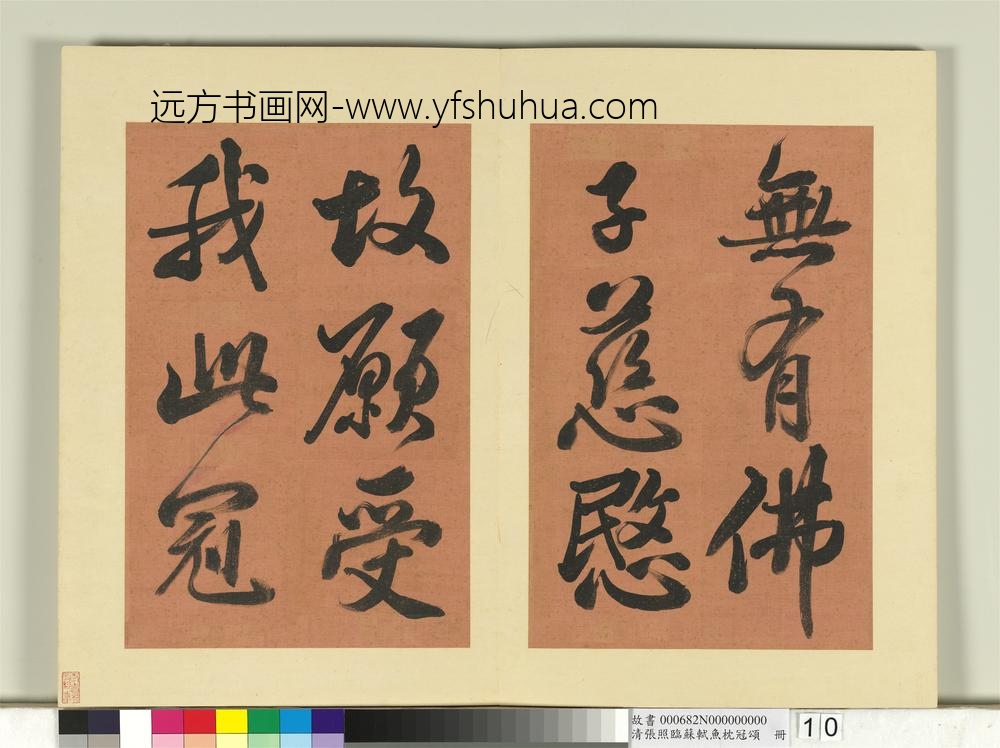 远方书画网-www.yfshuhua.com
無有佛
子慈愍
故願受
我此冠
故書 000682N000000000
清張照臨蘇軾魚枕冠頌 冊
10